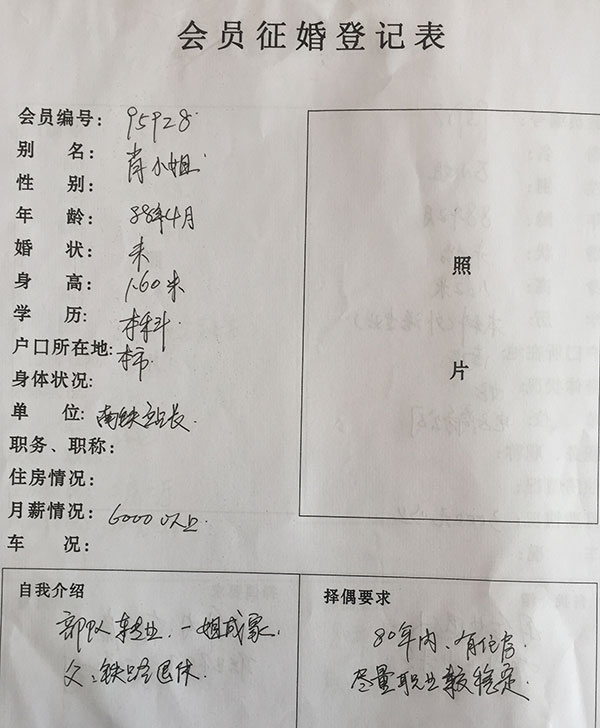 会员征婚登记表
会员编号: 95928
别 名: 肖小姐
性 别:
年 龄: 88年4月
婚 状: 未
身 高: 1.60米
学 历: 本科
户口所在地: 本市
身体状况:
单 位: 南铁站长
职务、职称:
住房情况:
月薪情况: 6000以上
车 况:
照
片
自我介绍
部队转业,一姐成家,
父:铁路退休.
择偶要求
80年内、有住房
尽量职业较稳定.